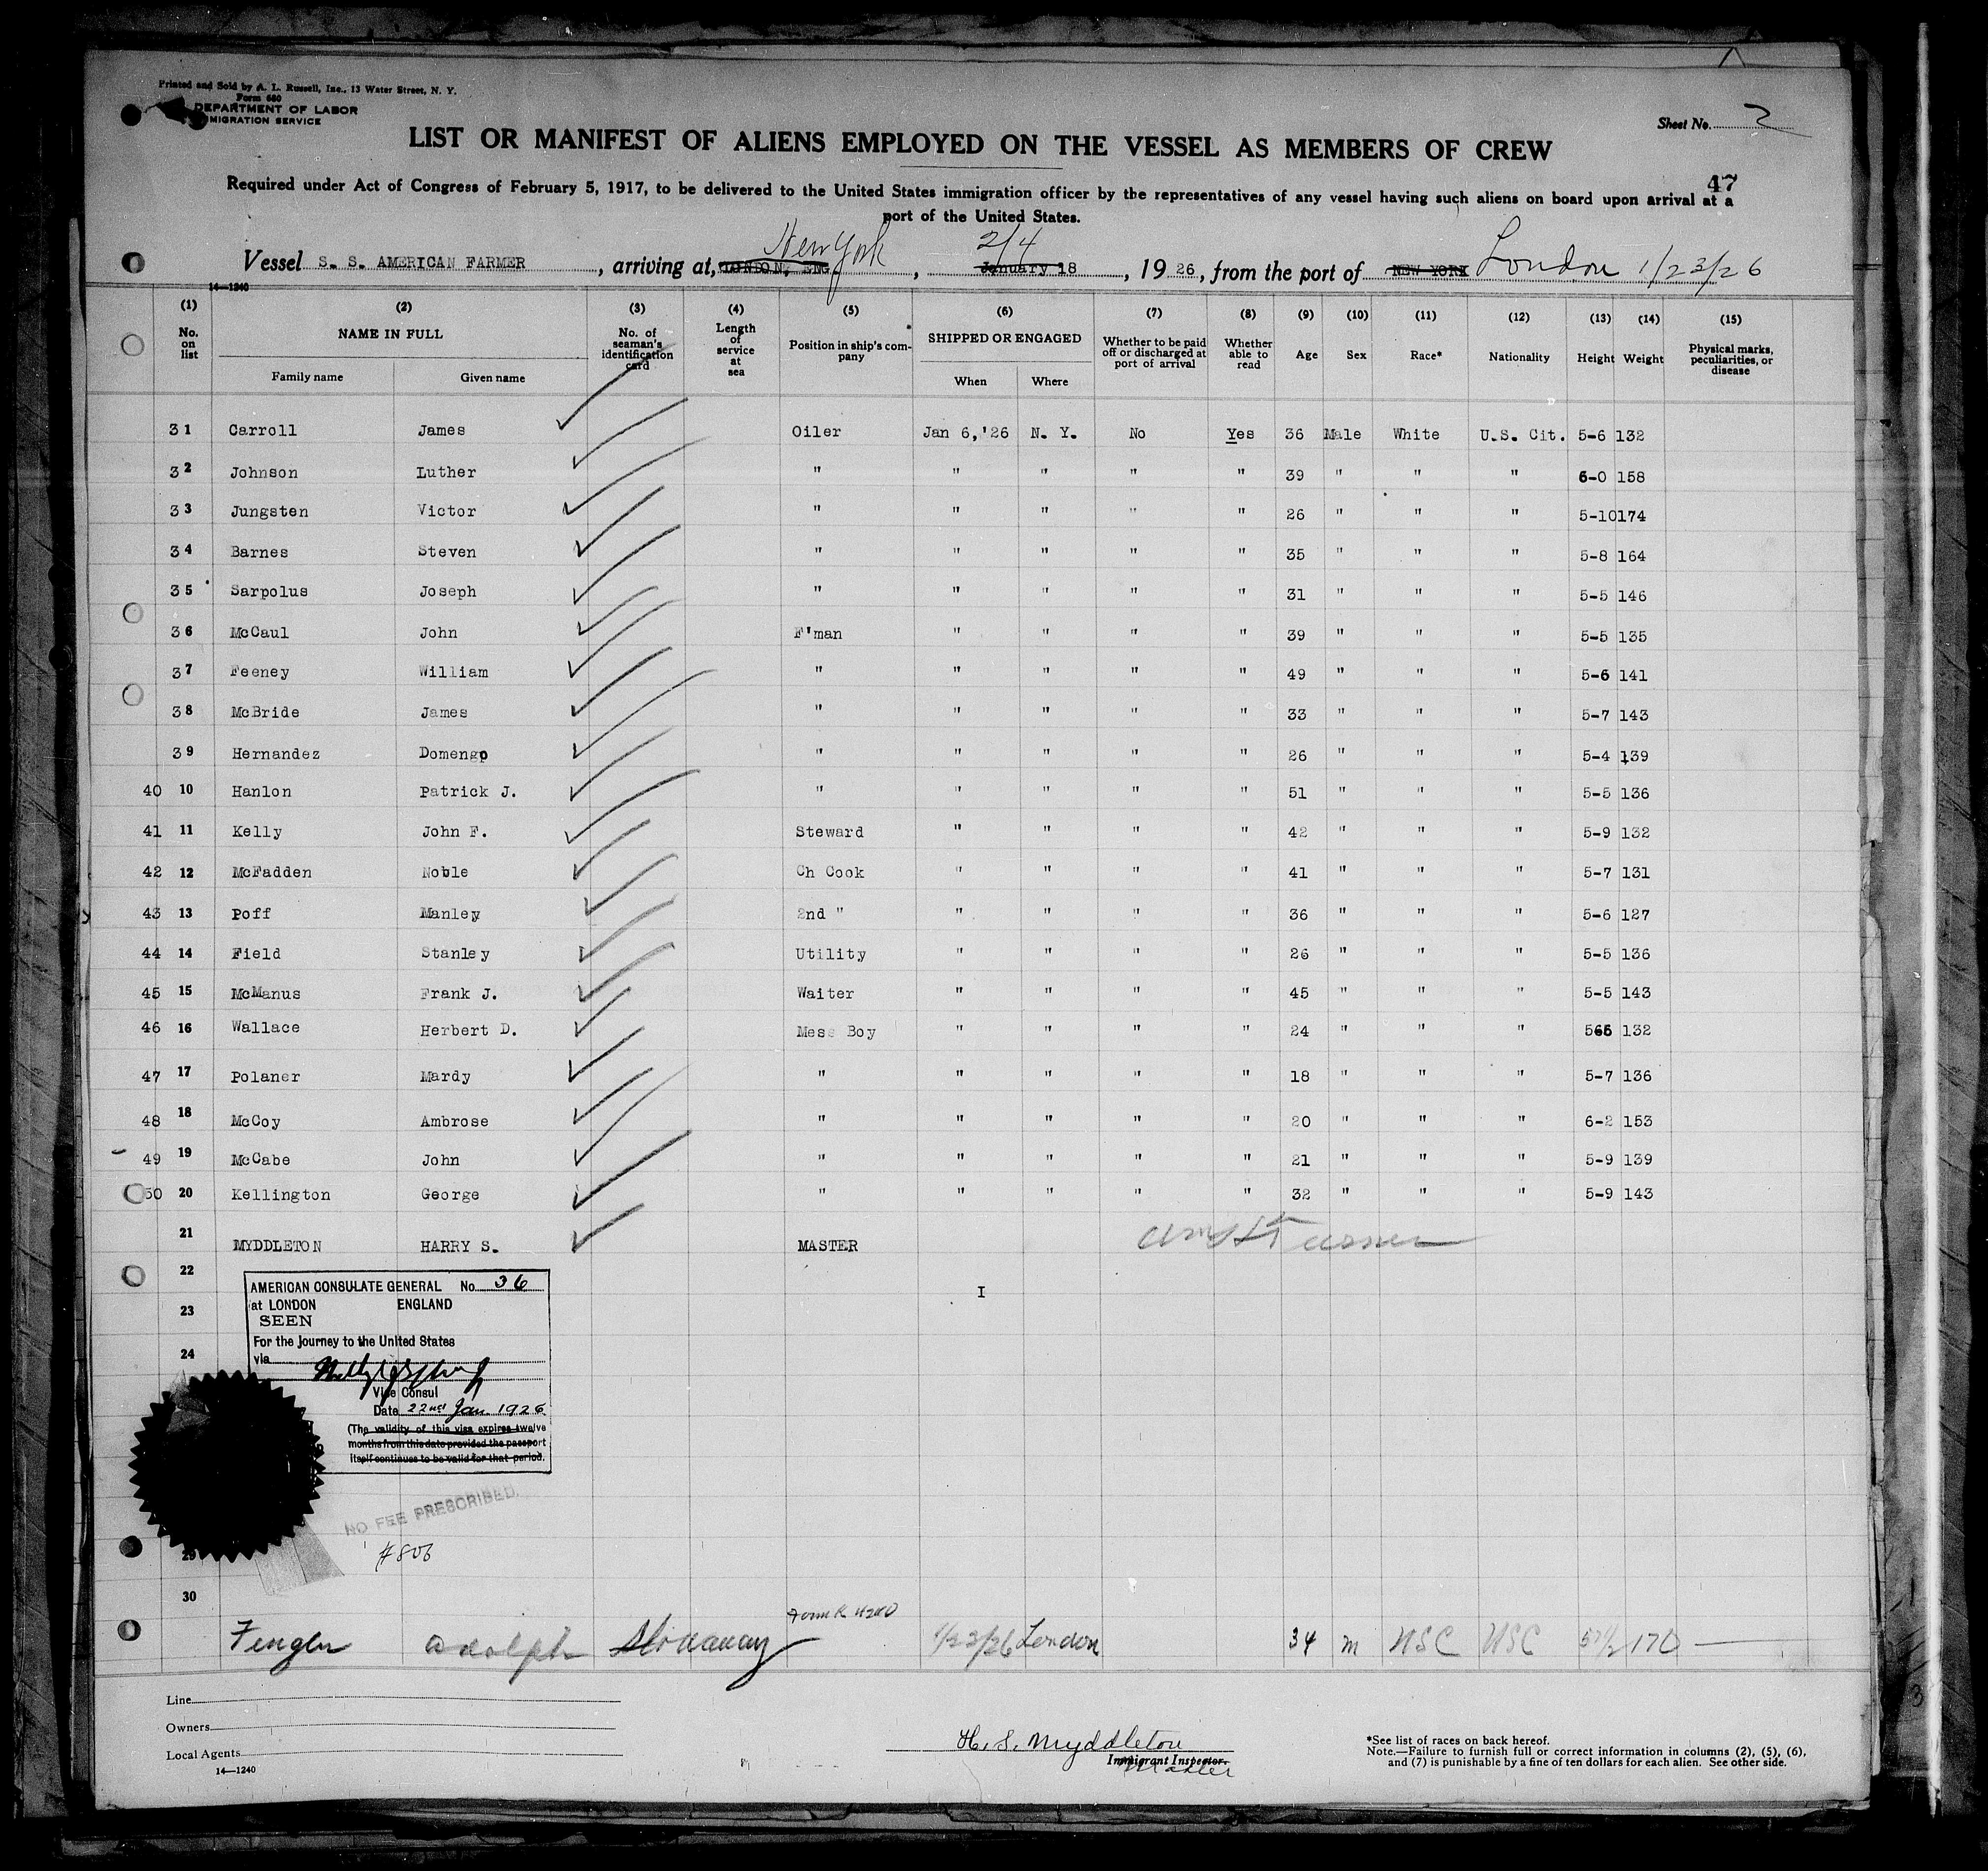 Printed and Sold by A. L. Russell, Inc., 13 Water Street, N. Y.
Form 680
DEPARTMENT OF LABOR
IMMIGRATION SERVICE
Sheet No. 2
LIST OR MANIFEST OF ALIENS EMPLOYED ON THE VESSEL AS MEMBERS OF CREW
47
Required under Act of Congress of February 5, 1917, to be delivered to the United States immigration officer by the representatives of any vessel having such aliens on board upon arrival at a
port of the United States.
New York 2/4
Vessel S. S. AMERICAN FARMER, arriving at, LONDON, ENG, January 18, 19 26, from the port of NEW YORK London 1/23/26
14—1240
(1) (2) (3) (4) (5) (6) (7) (8) (9) (10) (11) (12) (13) (14) (15)
No. on list NAME IN FULL Family name Given name No. of seaman's identification card Length of service at sea Position in ship's company SHIPPED OR ENGAGED When Where Whether to be paid off or discharged at port of arrival Whether able to read Age Sex Race* Nationality Height Weight Physical marks, peculiarities, or disease
31 Carroll James Oiler Jan 6,'26 N. Y. No Yes 36 Male White U.S. Cit. 5-6 132
32 Johnson Luther " " " " " 39 " " " 6-0 158
33 Jungsten Victor " " " " " 26 " " " 5-10 174
34 Barnes Steven " " " " " 35 " " " 5-8 164
35 Sarpolus Joseph " " " " " 31 " " " 5-5 146
36 McCaul John F'man " " " " 39 " " " 5-5 135
37 Feeney William " " " " " 49 " " " 5-6 141
38 McBride James " " " " " 33 " " " 5-7 143
39 Hernandez Domengo " " " " " 26 " " " 5-4 139
40 10 Hanlon Patrick J. " " " " " 51 " " " 5-5 136
41 11 Kelly John F. Steward " " " " 42 " " " 5-9 132
42 12 McFadden Noble Ch Cook " " " " 41 " " " 5-7 131
43 13 Poff Manley 2nd " " " " " 36 " " " 5-6 127
44 14 Field Stanley Utility " " " " 26 " " " 5-5 136
45 15 McManus Frank J. Waiter " " " " 45 " " " 5-5 143
46 16 Wallace Herbert D. Mess Boy " " " " 24 " " " 566 132
47 17 Polaner Mardy " " " " " 18 " " " 5-7 136
48 18 McCoy Ambrose " " " " " 20 " " " 6-2 153
49 19 McCabe John " " " " " 21 " " " 5-9 139
50 20 Kellington George " " " " " 32 " " " 5-9 143
21 MYDDLETON HARRY S. MASTER
22
AMERICAN CONSULATE GENERAL No. 36
23 at LONDON ENGLAND
SEEN
I
For the journey to the United States
24 via
Vice Consul
Date 22nd Jan. 1926.
(The validity of this visa expires twelve
months from this date provided the passport
itself continues to be valid for that period.
NO FEE PRESCRIBED.
29 #806
30
Fengler Adolph Stowaway 1/23/26 London 34 m USC USC 5 7 1/2 170
Line
Owners
Local Agents
14—1240
H. S. Myddleton
Immigrant Inspector.
Master
*See list of races on back hereof.
Note.—Failure to furnish full or correct information in columns (2), (5), (6),
and (7) is punishable by a fine of ten dollars for each alien. See other side.